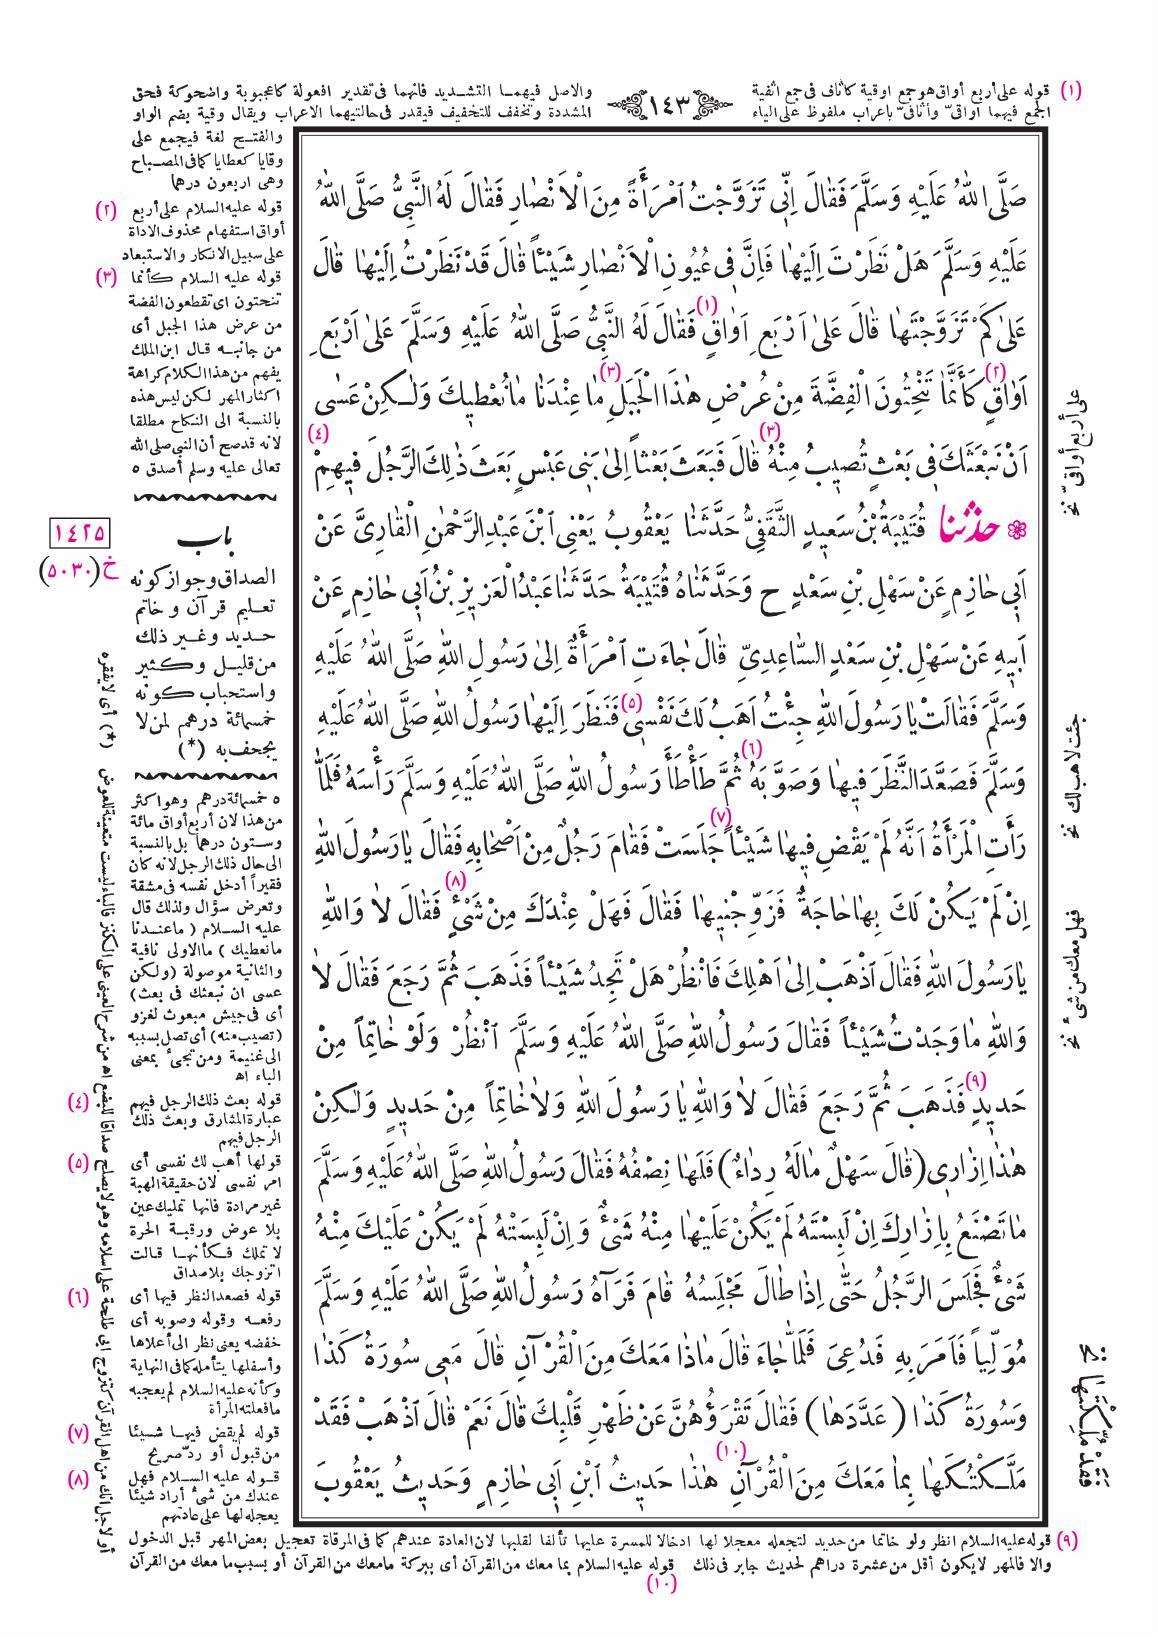 (١) قوله على أربع أواق هو جمع اوقية كأثاف فى جمع اثفية
الجمع فيهما اواقىّ وأثافىّ بإعراب ملفوظ على الياء
١٤٣
والاصل فيهما التشديد فانهما فى تقدير افعولة كاعجبوبة واضحوكة فحق
المشددة وتخفف للتخفيف فيقدر فى حالتيهما الاعراب ويقال وقية بضم الواو
والفتح لغة فيجمع على
وقايا كعطايا كما فى المصباح
وهى اربعون درهما
(٢) قوله عليه السلام على أربع
أواق استفهام محذوف الاداة
على سبيل الانكار والاستبعاد
(٣) قوله عليه السلام كأنما
تنحتون اى تقطعون الفضة
من عرض هذا الجبل أى
من جانبه قال ابن الملك
يفهم من هذا الكلام كراهة
اكثار المهر لكن ليس هذه
بالنسبة الى النكاح مطلقا
لانه قد صح أن النبى صلى الله
تعالى عليه وسلم أصدق ٥
صَلَّى اللهُ عَلَيْهِ وَسَلَّمَ فَقَالَ اِنّى تَزَوَّجْتُ اٰمْرَأَةً مِنَ الْاَنْصَارِ فَقَالَ لَهُ النَّبِىُّ صَلَّى اللهُ
عَلَيْهِ وَسَلَّمَ هَلْ نَظَرْتَ اِلَيْهَا فَاِنَّ فِى عُيُونِ الْاَنْصَارِ شَيْـٔاً قَالَ قَدْ نَظَرْتُ اِلَيْهَا قَالَ
عَلىٰ كَمْ تَزَوَّجْتَهَا قَالَ عَلىٰ اَرْبَعِ اَوَاقٍ (١) فَقَالَ لَهُ النَّبِىُّ صَلَّى اللهُ عَلَيْهِ وَسَلَّمَ عَلىٰ اَرْبَعِ
اَوَاقٍ (٢) كَأَنَّمَا تَنْحِتُونَ الْفِضَّةَ مِنْ عُرْضِ هٰذَا الْجَبَلِ (٣) مَا عِنْدَنَا مَا نُعْطِيكَ وَلٰـكِنْ عَسٰى
اَنْ نَبْعَثَكَ فِى بَعْثٍ تُصِيبُ مِنْهُ (٣) قَالَ فَبَعَثَ بَعْثاً اِلىٰ بَنِى عَبْسٍ بَعَثَ ذٰلِكَ الرَّجُلَ فِيهِمْ (٤)
❁ حدثنا قُتَيْبَةُ بْنُ سَعِيدٍ الثَّقَفِىُّ حَدَّثَنَا يَعْقُوبُ يَعْنِى ابْنَ عَبْدِ الرَّحْمٰنِ الْقَارِىَّ عَنْ
اَبِى حَازِمٍ عَنْ سَهْلِ بْنِ سَعْدٍ ح وَحَدَّثَنَاهُ قُتَيْبَةُ حَدَّثَنَا عَبْدُ الْعَزِيزِ بْنُ اَبِى حَازِمٍ عَنْ
اَبِيهِ عَنْ سَهْلِ بْنِ سَعْدٍ السَّاعِدِىِّ قَالَ جَاءَتِ امْرَأَةٌ اِلىٰ رَسُولِ اللهِ صَلَّى اللهُ عَلَيْهِ
وَسَلَّمَ فَقَالَتْ يَا رَسُولَ اللهِ جِئْتُ اَهَبُ لَكَ نَفْسِى (٥) فَنَظَرَ اِلَيْهَا رَسُولُ اللهِ صَلَّى اللهُ عَلَيْهِ
وَسَلَّمَ فَصَعَّدَ النَّظَرَ فِيهَا وَصَوَّبَهُ (٦) ثُمَّ طَأْطَأَ رَسُولُ اللهِ صَلَّى اللهُ عَلَيْهِ وَسَلَّمَ رَأْسَهُ فَلَمَّا
رَأَتِ الْمَرْأَةُ اَنَّهُ لَمْ يَقْضِ فِيهَا شَيْـٔاً (٧) جَلَسَتْ فَقَامَ رَجُلٌ مِنْ اَصْحَابِهِ فَقَالَ يَا رَسُولَ اللهِ
اِنْ لَمْ يَكُنْ لَكَ بِهَا حَاجَةٌ فَزَوِّجْنِيهَا فَقَالَ فَهَلْ عِنْدَكَ مِنْ شَىْءٍ (٨) فَقَالَ لَا وَاللهِ
يَا رَسُولَ اللهِ فَقَالَ اذْهَبْ اِلىٰ اَهْلِكَ فَانْظُرْ هَلْ تَجِدُ شَيْـٔاً فَذَهَبَ ثُمَّ رَجَعَ فَقَالَ لَا
وَاللهِ مَا وَجَدْتُ شَيْـٔاً فَقَالَ رَسُولُ اللهِ صَلَّى اللهُ عَلَيْهِ وَسَلَّمَ انْظُرْ وَلَوْ خَاتِماً مِنْ
حَدِيدٍ (٩) فَذَهَبَ ثُمَّ رَجَعَ فَقَالَ لَا وَاللهِ يَا رَسُولَ اللهِ وَلَا خَاتِماً مِنْ حَدِيدٍ وَلٰكِنْ
هٰذَا اِزَارِى (قَالَ سَهْلٌ مَا لَهُ رِدَاءٌ) فَلَهَا نِصْفُهُ فَقَالَ رَسُولُ اللهِ صَلَّى اللهُ عَلَيْهِ وَسَلَّمَ
مَا تَصْنَعُ بِاِزَارِكَ اِنْ لَبِسْتَهُ لَمْ يَكُنْ عَلَيْهَا مِنْهُ شَىْءٌ وَاِنْ لَبِسَتْهُ لَمْ يَكُنْ عَلَيْكَ مِنْهُ
شَىْءٌ فَجَلَسَ الرَّجُلُ حَتّٰى اِذَا طَالَ مَجْلِسُهُ قَامَ فَرَآهُ رَسُولُ اللهِ صَلَّى اللهُ عَلَيْهِ وَسَلَّمَ
مُوَلِّياً فَاَمَرَ بِهِ فَدُعِىَ فَلَمَّا جَاءَ قَالَ مَاذَا مَعَكَ مِنَ الْقُرْآنِ قَالَ مَعِى سُورَةُ كَذَا
وَسُورَةُ كَذَا (عَدَّدَهَا) فَقَالَ تَقْرَؤُهُنَّ عَنْ ظَهْرِ قَلْبِكَ قَالَ نَعَمْ قَالَ اذْهَبْ فَقَدْ
مَلَّـكْتُـكَهَا بِمَا مَعَكَ مِنَ الْقُرْآنِ (١٠) هٰذَا حَدِيثُ ابْنِ اَبِى حَازِمٍ وَحَدِيثُ يَعْقُوبَ
على أربع أواقىّ نخ
جئت لاهب لك نخ
فهل معك من شىء نخ
فقد مُلِّكْتَهَا نخ
١٤٢٥
خ (٥٠٣٠)
باب
الصداق وجواز كونه
تعليم قرآن وخاتم
حديد وغير ذلك
من قليل وكثير
واستحباب كونه
خمسمائة درهم لمن لا
يجحف به (*)
٥ خمسمائة درهم وهو اكثر
من هذا لان أربع أواق مائة
وستون درهما بل بالنسبة
الى حال ذلك الرجل لانه كان
فقيراً أدخل نفسه فى مشقة
وتعرض سؤال ولذلك قال
عليه السلام ( ما عندنا
ما نعطيك ) ما الاولى نافية
والثانية موصولة (ولكن
عسى ان نبعثك فى بعث)
أى فى جيش مبعوث لغزو
(تصيب منه) أى تصل بسببه
الى غنيمة ومن تجىء بمعنى
الباء اه
(٤) قوله بعث ذلك الرجل فيهم
عبارة المشارق وبعث ذلك
الرجل فيهم
(٥) قولها أهب لك نفسى أى
امر نفسى لان حقيقة الهبة
غير مرادة فانها تمليك عين
بلا عوض ورقبة الحرة
لا تملك فكأنها قالت
اتزوجك بلا صداق
(٦) قوله فصعد النظر فيها أى
رفعه وقوله وصوبه أى
خفضه يعنى نظر الى أعلاها
وأسفلها يتأمله كما فى النهاية
وكأنه عليه السلام لم يعجبه
ما فعلته المرأة
(٧) قوله لم يقض فيها شيئا
من قبول أو ردّ صريح
(٨) قوله عليه السلام فهل
عندك من شىء أراد شيئا
يعجله لها على عادتهم
(*) أى لا يفقره
أو لاجل انك من اهل القرآن كتزوج ابى طلحة على اسلامه وهو لا يصلح صداقا للبضع اه من شرح العينى على الكنز فالباء ليست متعينة للعوض
(٩) قوله عليه السلام انظر ولو خاتما من حديد لتجعله معجلا لها ادخالا للمسرة عليها تألفا لقلبها لان العادة عندهم كما فى المرقاة تعجيل بعض المهر قبل الدخول
والا فالمهر لا يكون أقل من عشرة دراهم لحديث جابر فى ذلك (١٠) قوله عليه السلام بما معك من القرآن أى ببركة ما معك من القرآن أو بسبب ما معك من القرآن